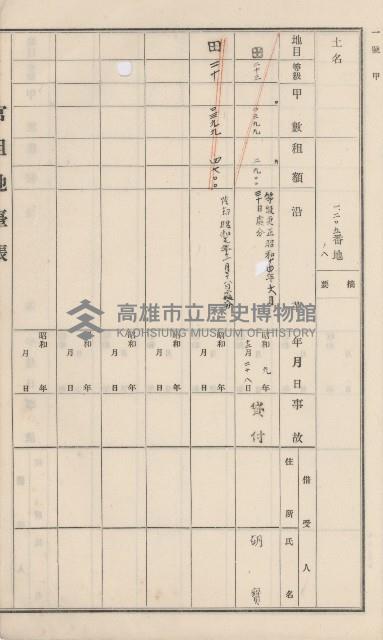 一號甲
土名
一、二〇五番地ノ八
摘要
地目
等級
甲數
租額
沿革
年月日
事故
借受人
住所
氏名
田
二十二
〇三九九
二九〇〇
等級更正昭和十四年六月
三十日處分
昭和九年
十二月二十八日
貸付
胡寶
田
二十
〇三九九
四八〇〇
昭和 年
月 日
昭和 年
月 日
昭和 年
月 日
昭和 年
月 日
昭和 年
月 日
官租地臺帳
高雄市立歷史博物館
KAOHSIUNG MUSEUM OF HISTORY